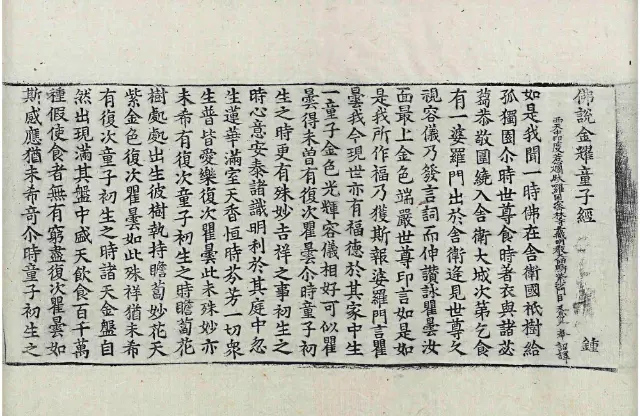 佛說金耀童子經
鍾
如是我聞一時佛在舍衛國祇樹給
孤獨園尒時世尊食時著衣與諸苾
蒭恭敬圍繞入舍衛大城次第乞食
有一婆羅門出於舍衛逢見世尊久
視容儀乃發言詞而伸讚詠瞿曇汝
面最上金色端嚴世尊印言如是如
是我所作福乃獲斯報婆羅門言瞿
曇我今現世亦有福德於其家中生
一童子金色光輝容儀相好可似瞿
曇得未曾有復次瞿曇尒時童子初
生之時更有殊妙吉祥之事初生之
時心意安泰諸識明利於其庭中忽
生蓮華滿室天香恒時芬芳一切衆
生普皆愛樂復次瞿曇此未殊妙亦
未希有復次童子初生之時瞻蔔花
樹處處出生彼樹執持瞻蔔妙花天
紫金色復次瞿曇如此殊祥猶未希
有復次童子初生之時諸天金盤自
然出現滿其盤中盛天飲食百千萬
種假使食者無有窮盡復次瞿曇如
斯感應猶未希奇尒時童子初生之